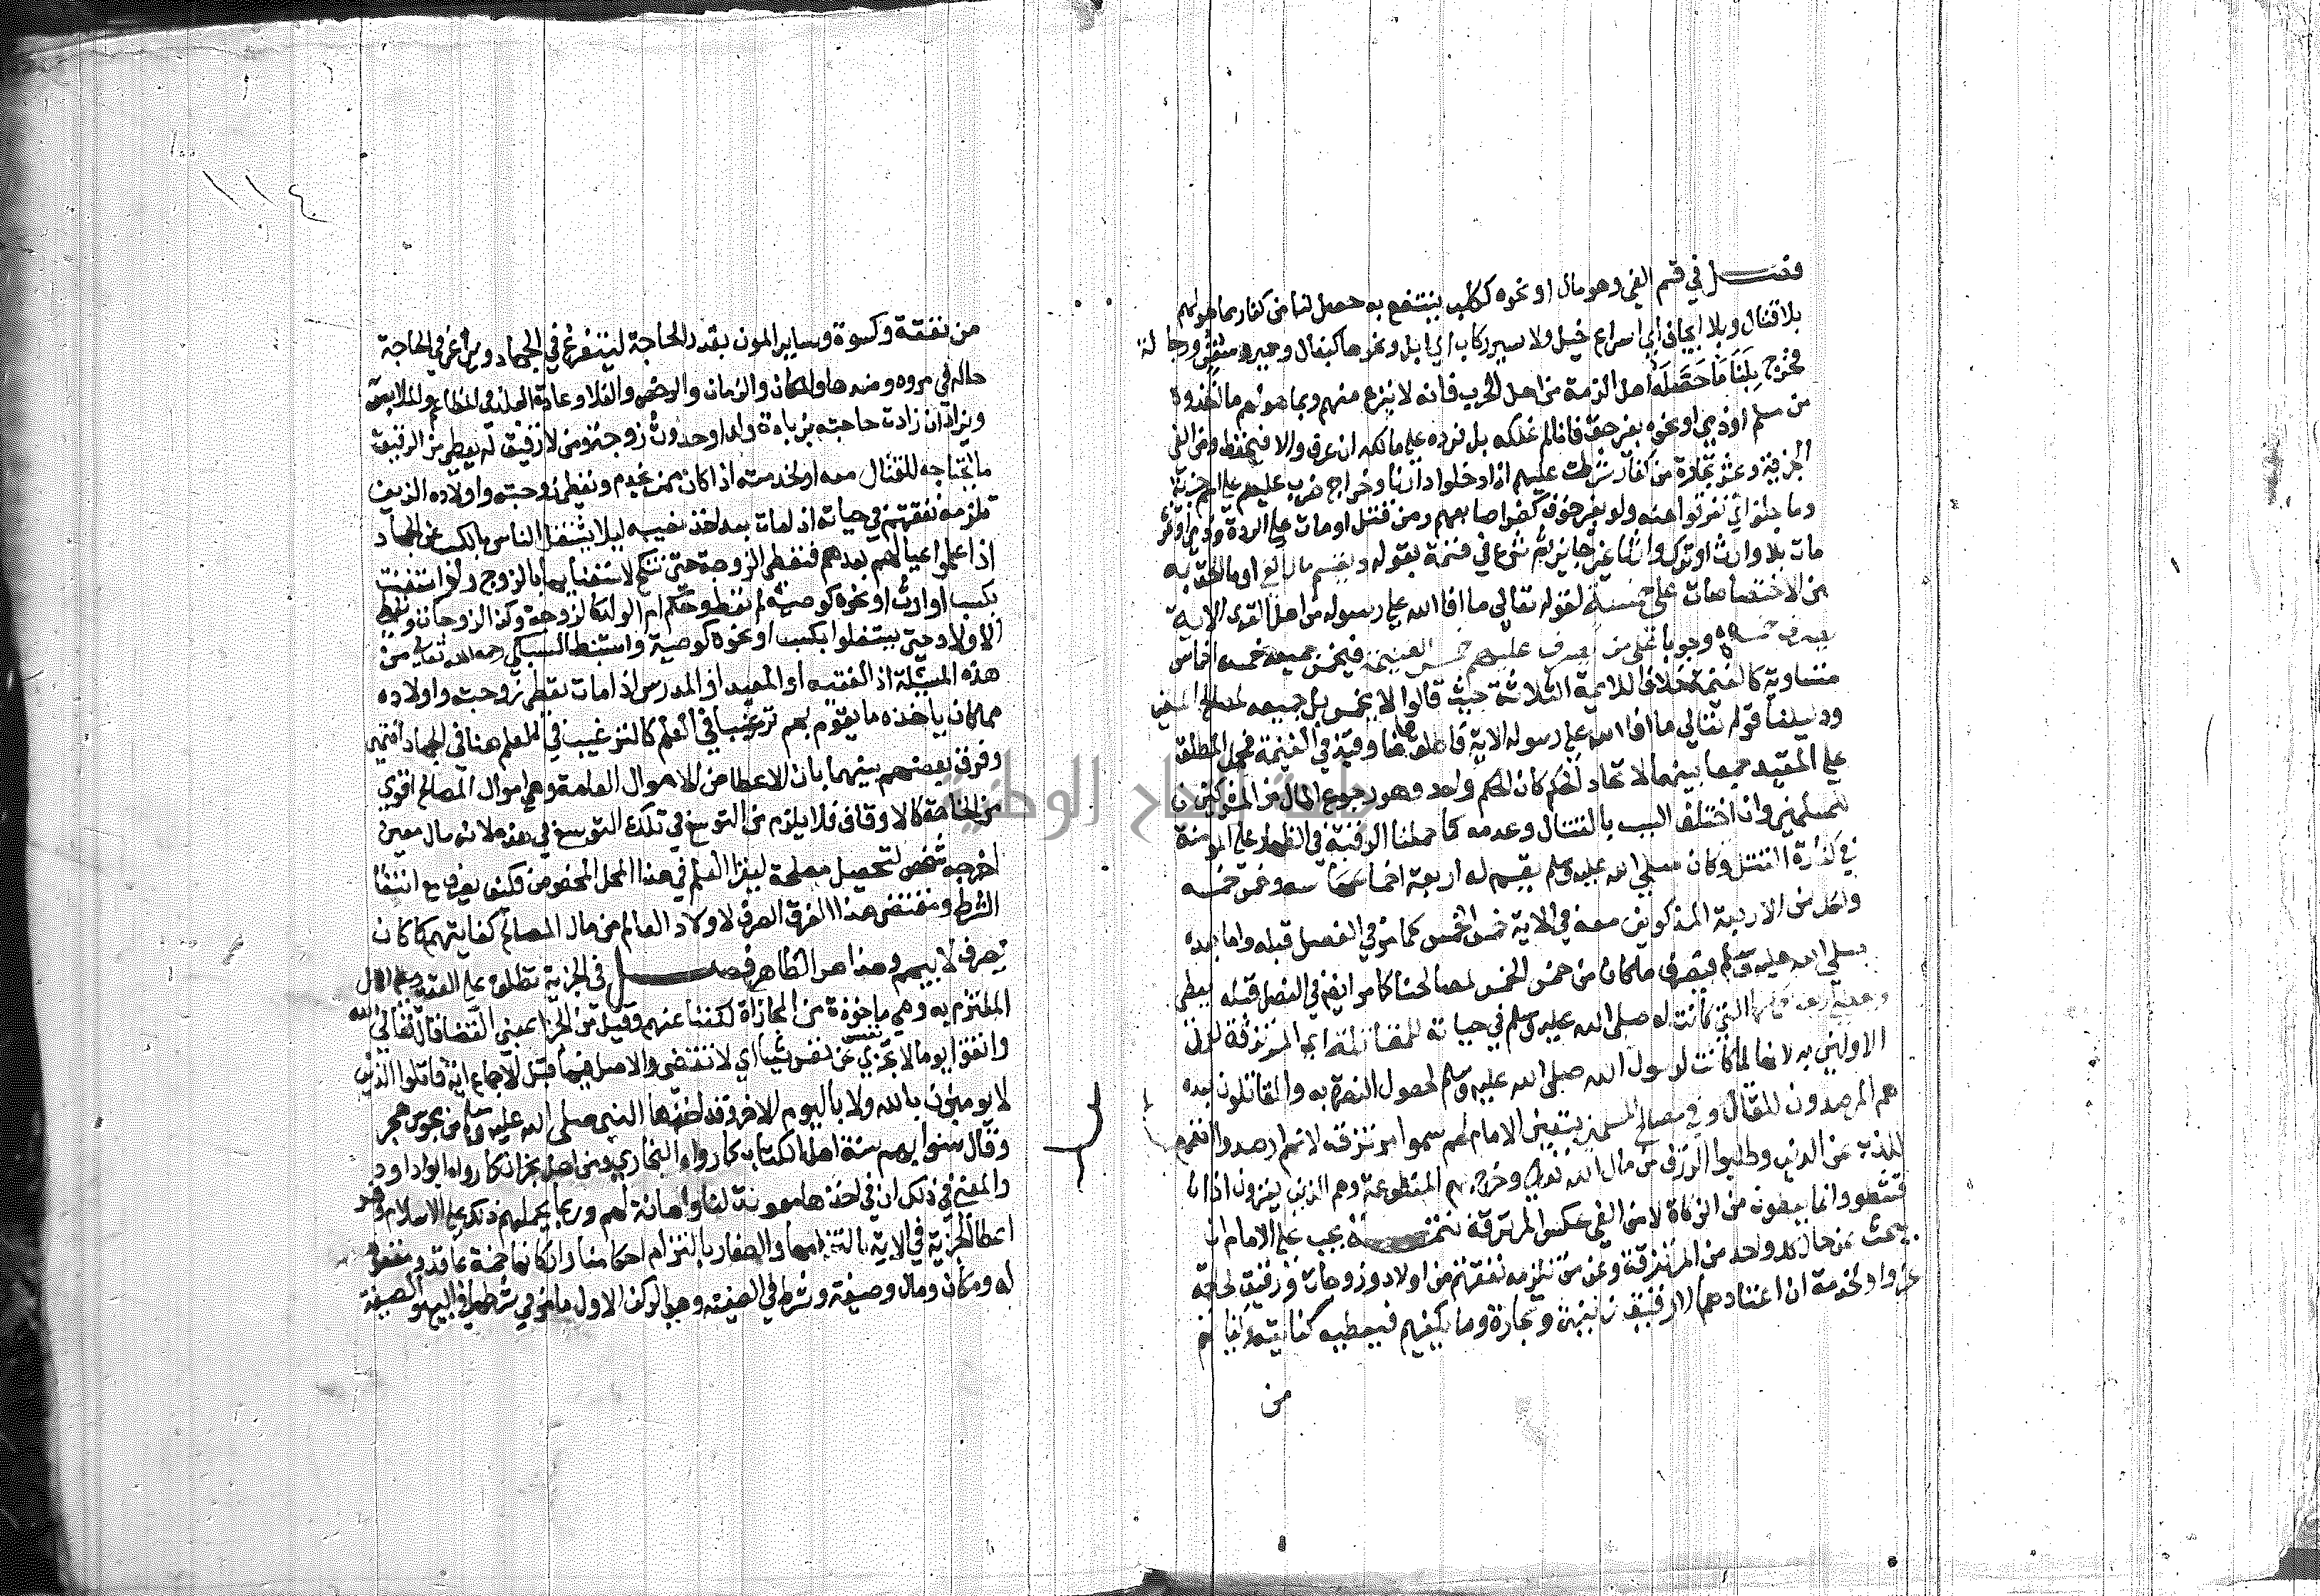 فصل في قسم الفي وهو مال او نحوه ككلب ينتفع به حصل لنا من كفار مما هو لهم
بلا قتال وبلا ايجاف اي اسراع خيل ولا سير ركاب اي ابل ونحوها كبغال وحمير وسفن ورجالة
فخرج بلنا ما حصله اهل الذمة من اهل الحرب فانه لا ينزع منهم وبما هو لهم ما اخذوه
من مسلم او ذمي او نحوه بغير حق فانا لم نملكه بل نرده على مالكه ان عرف والا فيحفظ ومن الفي
الجزية وعشر تجارة من كفار شرطت عليهم اذا دخلوا دارنا وخراج ضرب عليهم على اسم جزية
وما جلوا اي تفرقوا عنه ولو بغير خوف كضر اصابهم ومن قتل او مات على الردة وذمي او نحوه
مات بلا وارث او ترك وارثا غير جايز ثم شرع في قسمة بقوله ويقسم مال الفي او ما الحق به
من الاختصاصات على خمسة لقوله تعالى ما افا الله على رسوله من اهل القرى الاية
يصرف خمسه وجوبا على من يصرف عليهم خمس الغنيمة فيخمس جميعه خمسة اخماس
متساوية كالغنيمة خلافا للايمة الثلاثة حيث قالوا لا يخمس بل جميعه لمصالح المسلمين
ودليلنا قوله تعالى ما افا الله على رسوله الاية فاطلق ههنا وقيد في الغنيمة فحمل المطلق
على المقيد جمعا بينهما لاتحاد الحكم فان الحكم واحد وهو رجوع المال من المشركين
للمسلمين وان اختلف السبب بالقتال وعدمه كما حملنا الرقبة في الظهار على المومنة
في كفارة القتل وكان صلى الله عليه وسلم يقسم له اربعة اخماسه وخمس خمسه
ولكل من الاربعة المذكورين معه في الاية خمس الخمس كما مر في الفصل قبله واما بعده
صلى الله عليه وسلم فيصرف ما كان من خمس الخمس لمصالحنا كما مر ايضا في الفصل قبله ويعطى
التي كانت له صلى الله عليه وسلم في حياته للمقاتلة اي المرتزقة
الاولين به لانها كانت لرسول الله صلى الله عليه وسلم لحصول النصرة به والمقاتلون بعده
هم المرصدون للقتال وفي مصالح المسلمين بتعيين الامام لهم سموا مرتزقة لانهم ارصدوا انفسهم
للذب عن الدين وطلبوا الرزق من مال الله تعالى وخرج بهم المتطوعة وهم الذين يغزون اذا
نشطوا وانما يعطون من الزكاة لا من الفي عكس المرتزقة تتمة يجب على الامام ان
يبحث عن حال كل واحد من المرتزقة وعن من تلزمه نفقتهم من اولاد وزوجات ورقيق لحاجة
غزو او لخدمة ان اعتادها لا رقيق زينة وتجارة وما يكفيهم فيعطيه كفايته وكفايتهم
من
من نفقة وكسوة وساير المون بقدر الحاجة ليتفرغ في الجهاد ويراعى في الحاجة
حاله في مروءه وضدها والمكان والزمان والرخص والغلا وعادة البلد في المطاعم والملابس
ويزاد ان زادت حاجته بزيادة ولد او حدوث زوجة ومن لا رقيق له يعطى من الرقيق
ما يحتاجه للقتال معه او لخدمته اذا كان ممن يخدم ونعطي زوجته واولاده الذين
تلزمه نفقتهم في حياته اذا مات بعد اخذ نصيبه ليلا يشتغل الناس بالكسب عن الجهاد
اذا علموا عيالهم بعدهم فتعطى الزوجة حتى تنكح لاستغنايها بالزوج ولو استغنت
بكسب او ارث او نحوه كوصية لم تعط وحكم ام الولد كالزوجة وكذا الزوجات وتعطى
الاولاد حتى يستقلوا بكسب او نحوه كوصية واستنبط السبكي رحمه الله تعالى من
هذه المسيلة ان الفقيه او المعيد او المدرس اذا مات يعطى زوجته واولاده
مما كان ياخذه ما يقوم بهم ترغيبا في العلم كالترغيب هنا في الجهاد انتهى
وفرق بعضهم بينهما بان الاعطا من الاموال العامة وهي اموال المصالح اقوى
من الخاصة كالاوقاف فلا يلزم من التوسع في تلك التوسع في هذه لانه مال معين
اخرجه شخص لتحصيل مصلحة ليقرا العلم في هذا المحل المخصوص فكيف يصرف مع انتفا
الشرط ومقتضى هذا الفرق الصرف لاولاد العالم من مال المصالح كفايتهم كما كان
تصرف لابيهم وهذا هو الظاهر فصل في الجزية تطلق على العقد وعلى المال
الملتزم به وهي ماخوذة من المجازاة لكفنا عنهم وقيل من الجزا بمعنى القضا قال تعالى
واتقوا يوما لا تجزي نفس عن نفس شيا اي لا تقضى والاصل فيها قبل الاجماع اية قاتلوا الذين
لا يومنون بالله ولا باليوم الاخر وقد اخذها النبي صلى الله عليه وسلم من مجوس هجر
وقال سنوا بهم سنة اهل الكتاب كما رواه البخاري ومن اهل نجران كما رواه ابو داود
والمعنى في ذلك ان في اخذها معونة لنا واهانة لهم وربما يحملهم ذلك على الاسلام وفسر
اعطا الجزية في الاية بالتزامها والصغار بالتزام احكامنا واركانها خمسة عاقد ومعقود
له ومكان ومال وصيغة وشرط في الصيغة وهي الركن الاول ما مر في شرطها في البيع والصيغة